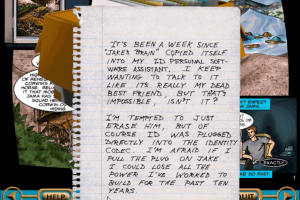 IT'S BEEN A WEEK SINCE
"JAKE'S BRAIN" COPIED ITSELF
INTO MY ID PERSONAL SOFT-
WARE ASSISTANT. I KEEP
WANTING TO TALK TO IT
LIKE IT'S REALLY MY DEAD
BEST FRIEND, BUT THAT'S
IMPOSSIBLE, ISN'T IT?
I'M TEMPTED TO JUST
ERASE HIM, BUT OF
COURSE ID WAS PLUGGED
DIRECTLY INTO THE IDENTITY
CODEC. I'M AFRAID IF I
PULL THE PLUG ON JAKE
I COULD LOSE ALL THE
POWER I'VE WORKED TO
BUILD FOR THE PAST TEN
YEARS.
EXACTLY
HELP